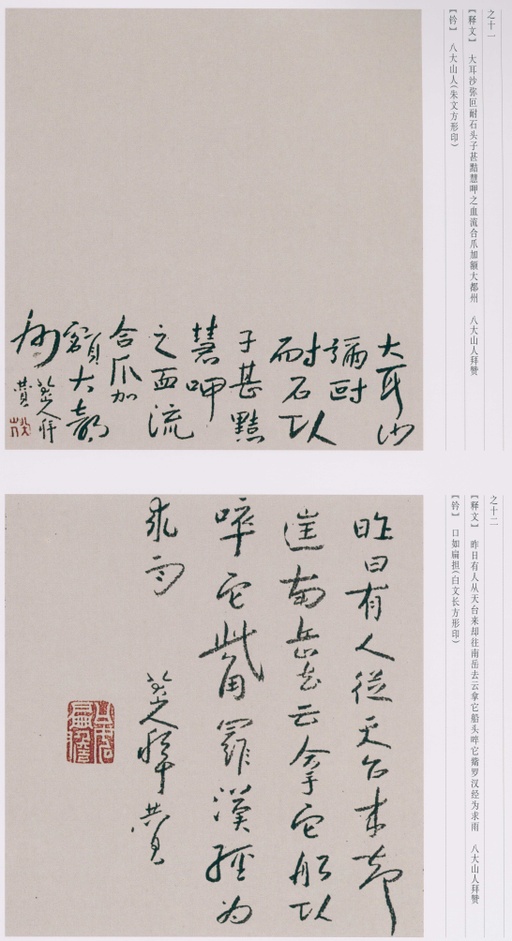 之十一
【释文】 大耳沙弥叵耐石头子甚黠慧呷之血流合爪加额大都州 八大山人拜赞
【钤】 八大山人(朱文方形印)
大耳沙
彌叵
耐石头
子甚黠
慧呷
之血流
合爪加
額大都
州
八大山人拜
赞
之十二
【释文】 昨日有人从天台来却往南岳去云拿它船头啐它觜罗汉经为求雨 八大山人拜赞
【钤】 口如扁担(白文长方形印)
昨日有人從天台来却
往南岳去云拿它船头
啐它觜羅漢經为
求雨
八大山人拜赞
口如扁担